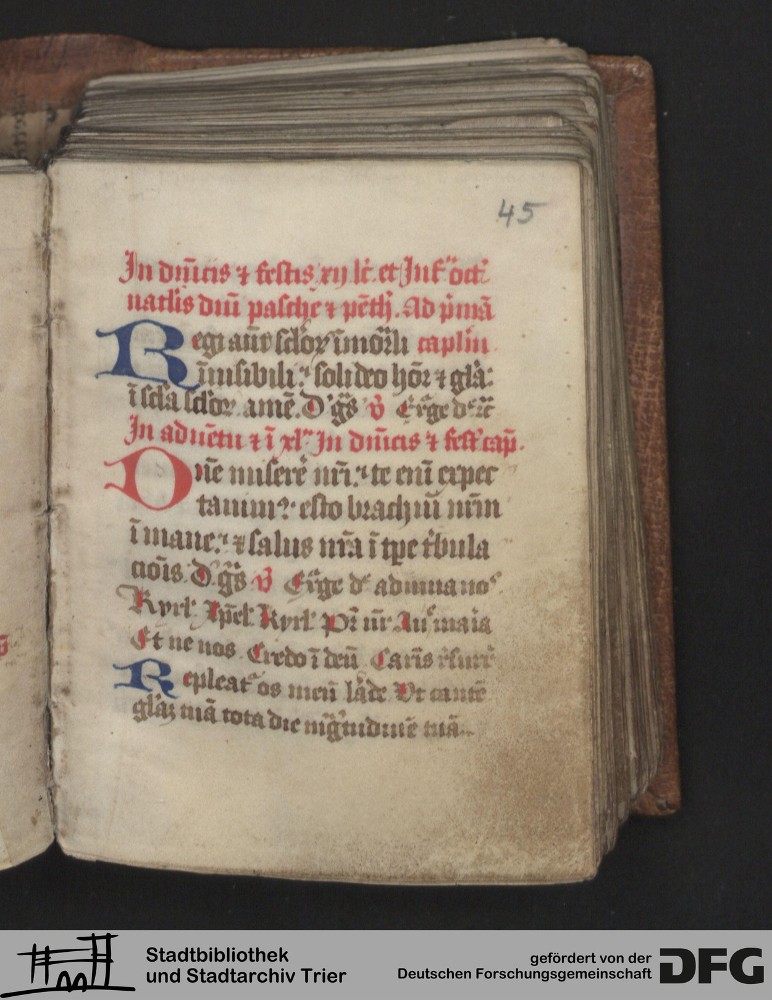 45
In dn̄icis ⁊ festis xij lc̄. et Inf͛ oct͛
natl̄is dn̄i pasche ⁊ pe̅th̅. Ad p̄mā
Regi aūt sclo̅ꝝ īmor̄li capl̄m
īuisibili: soli deo ho̅r ⁊ gl̄a:
ī scl̄a sclo̅r. amē. D' gr̄s v̄ Exr̄ge d͛ ⁊c̄
In aduētu ⁊ ī xl͛ In dn̄icis ⁊ fest͛ cap̄.
Dn̄e miserē nr̄i: te eni̅ expec
tauim⁹: esto brachiū nr̄m
ī mane: ⁊ salus nr̄a ī tp̄e t̄bula
cio̅is. D' gr̄s v̄ Exr̄ge d͛ adiuua nos
Kyrl͛ Xp̄el͛ Kyrl͛ Pr̄ nr̄ Au͛ maia
Et ne nos Credo ī deū Carīs r͛surr͛
Repleat͛ os meū lāde Vt cantē
gl̄aꝫ tuā tota die mḡtudinē tuā.
Stadtbibliothek
und Stadtarchiv Trier
gefördert von der
Deutschen Forschungsgemeinschaft
DFG